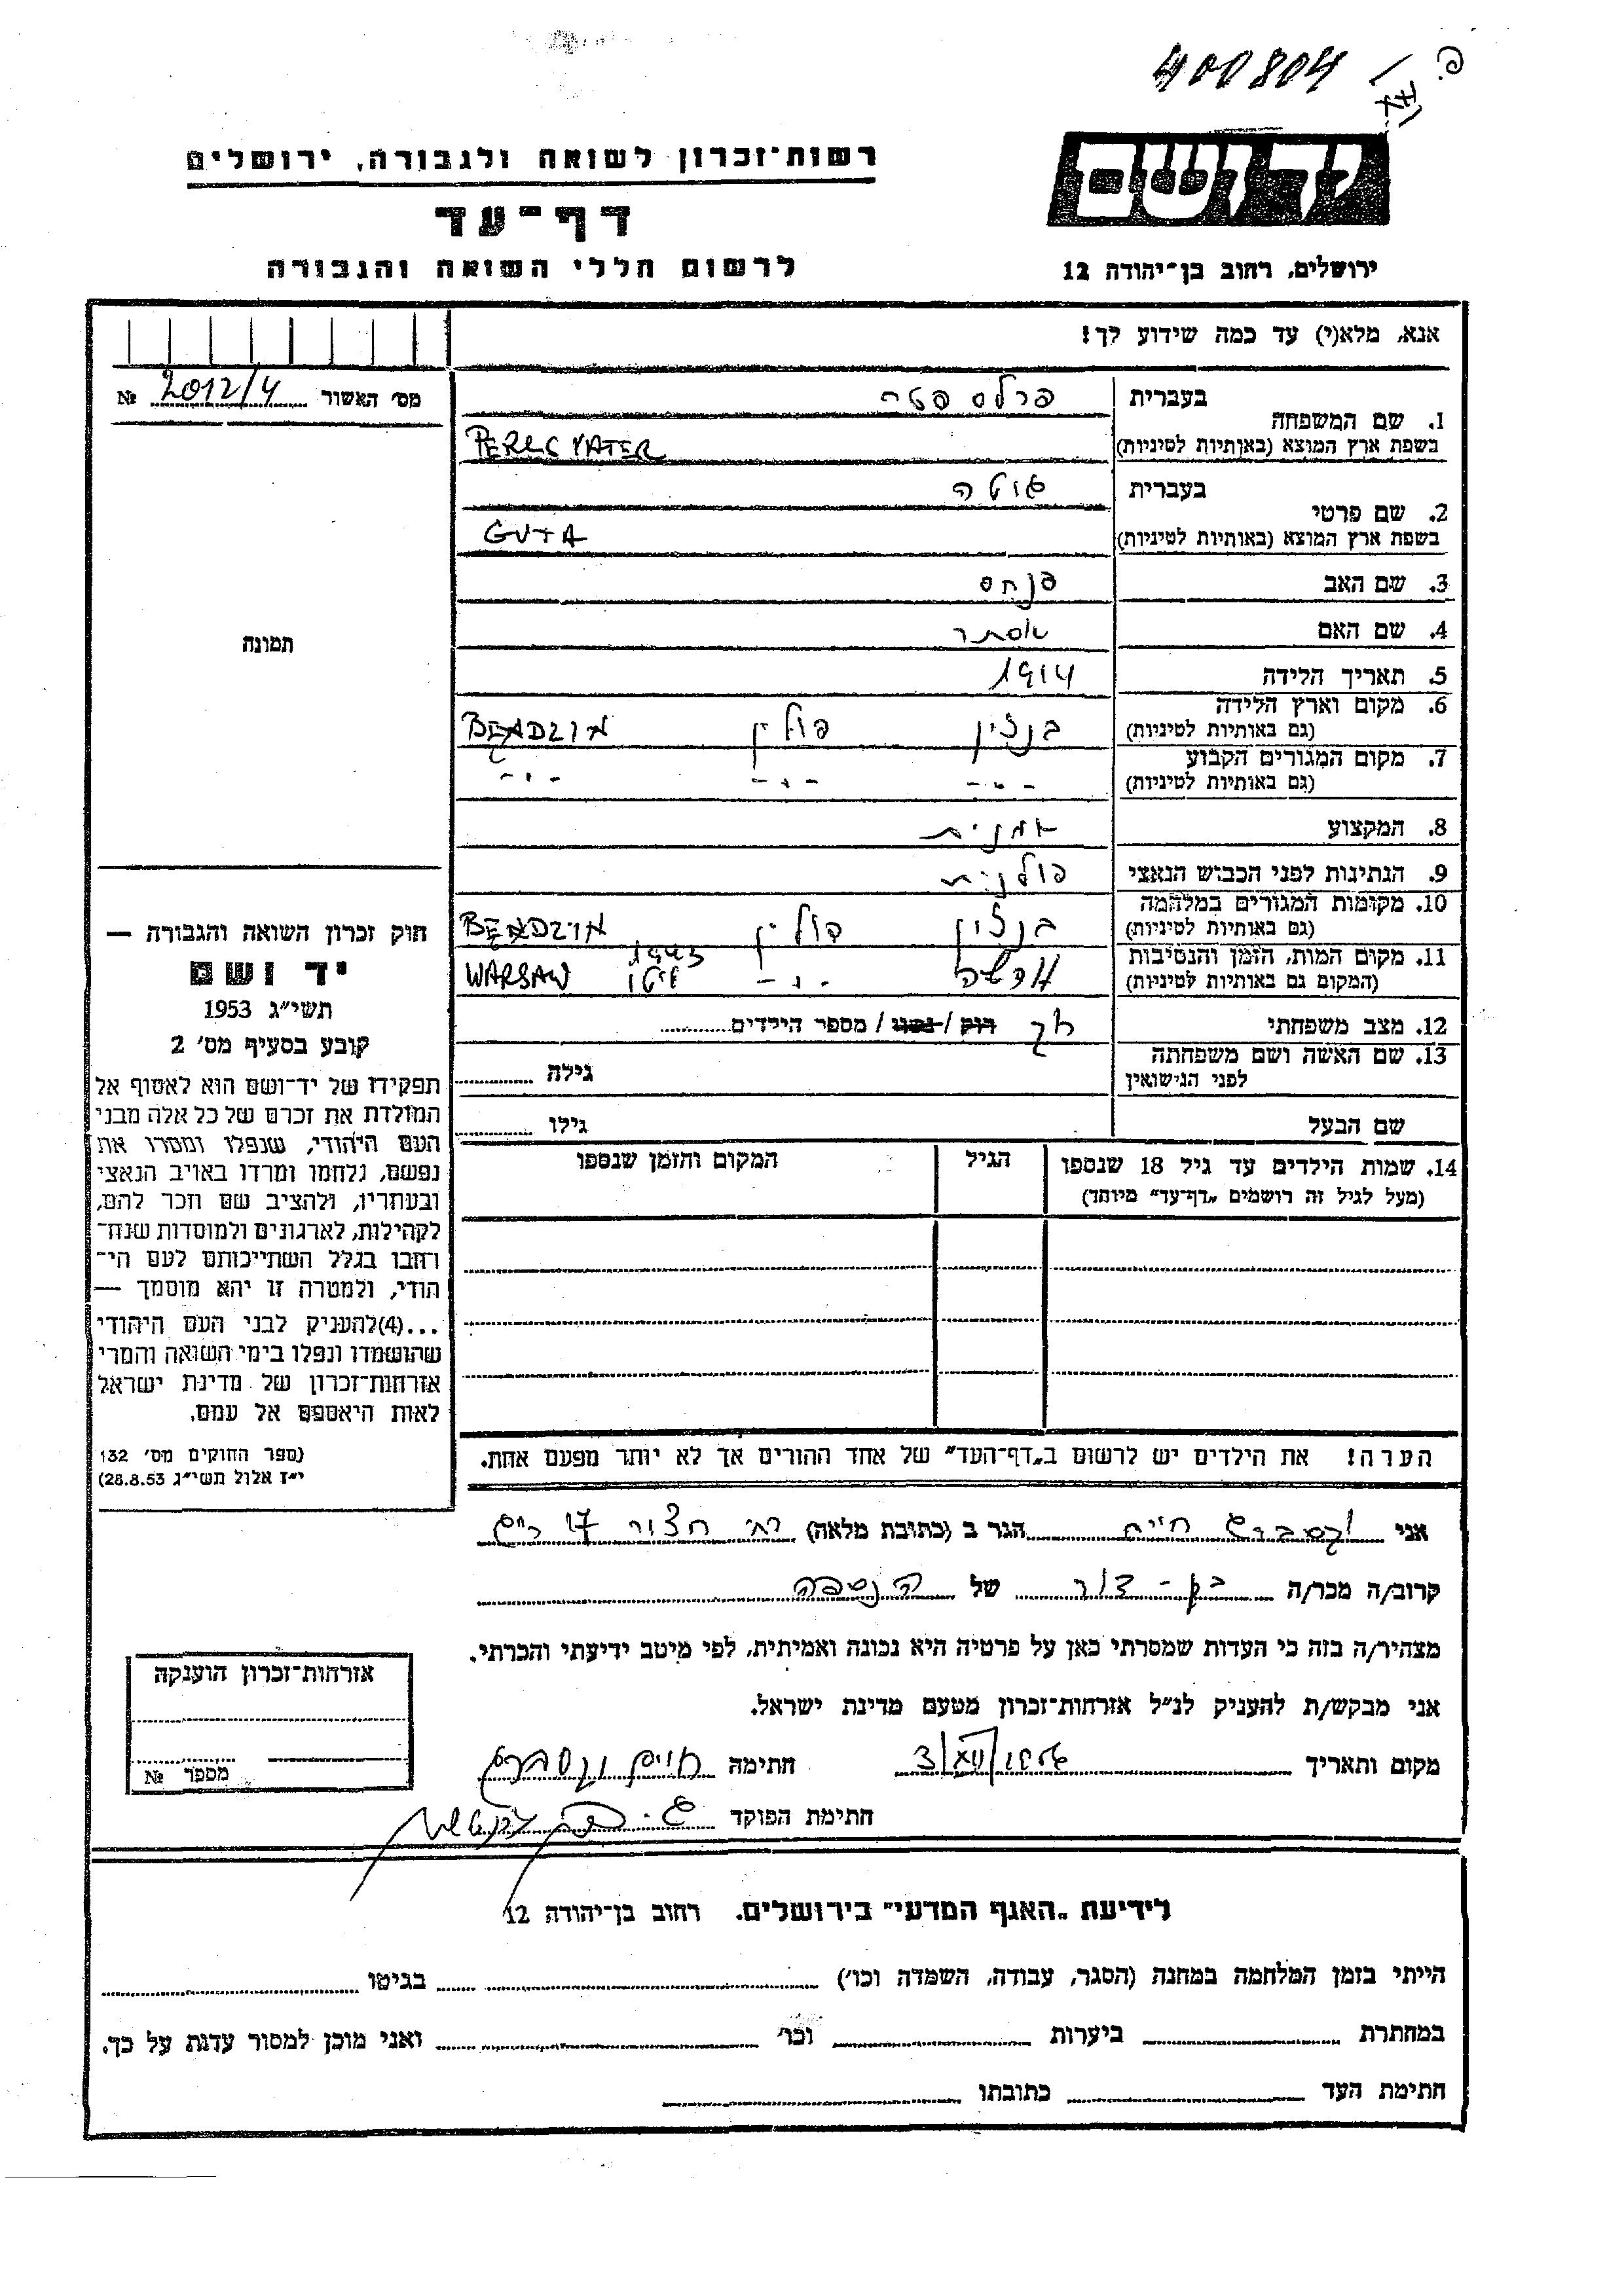 400804
יד ושם
ירושלים, רחוב בן־יהודה 12
רשות־זכרון לשואה ולגבורה, ירושלים
דף־עד
לרשום חללי השואה והגבורה
אנא, מלא(י) עד כמה שידוע לך!
מס׳ האשור 2012/4 №
תמונה
1. שם המשפחה בעברית
בשפת ארץ המוצא (באותיות לטיניות)
2. שם פרטי בעברית גוטה
בשפת ארץ המוצא (באותיות לטיניות) GUTA
3. שם האב פנחס
4. שם האם אסתר
5. תאריך הלידה 1914
6. מקום וארץ הלידה
(גם באותיות לטיניות) בנדzין פולין BENDZIN
7. מקום המגורים הקבוע
(גם באותיות לטיניות) - " - - " - - " -
8. המקצוע
9. הנתינות לפני הכבוש הנאצי פולנית
10. מקומות המגורים במלחמה
(גם באותיות לטיניות) פולין
11. מקום המות, הזמן והנסיבות
(המקום גם באותיות לטיניות) ורשה - " - 1943 גיטו WARSAW
12. מצב משפחתי רוק / נשוי / מספר הילדים
13. שם האשה ושם משפחתה
לפני הנישואין גילה
שם הבעל גילו
14. שמות הילדים עד גיל 18 שנספו
(מעל לגיל זה רושמים „דף־עד״ מיוחד)
הגיל
המקום והזמן שנספו
הערה! את הילדים יש לרשום ב„דף־העד״ של אחד ההורים אך לא יותר מפעם אחת.
חוק זכרון השואה והגבורה —
יד ושם
תשי״ג 1953
קובע בסעיף מס׳ 2
תפקידו של יד־ושם הוא לאסוף אל
המולדת את זכרם של כל אלה מבני
העם היהודי, שנפלו ומסרו את
נפשם, נלחמו ומרדו באויב הנאצי
ובעוזריו, ולהציב שם וזכר להם,
לקהילות, לארגונים ולמוסדות שנח־
רבו בגלל השתייכותם לעם הי־
הודי, ולמטרה זו יהא מוסמך —
...(4)להעניק לבני העם היהודי
שהושמדו ונפלו בימי השואה והמרי
אזרחות־זכרון של מדינת ישראל
לאות היאספם אל עמם.
(ספר החוקים מס׳ 132
י״ז אלול תשי״ג 28.8.53)
אני הגר ב (כתובת מלאה) רח׳ חצור 17
קרוב/ה מכר/ה של
מצהיר/ה בזה כי העדות שמסרתי כאן על פרטיה היא נכונה ואמיתית, לפי מיטב ידיעתי והכרתי.
אני מבקש/ת להעניק לנ״ל אזרחות־זכרון מטעם מדינת ישראל.
מקום ותאריך חתימה
חתימת הפוקד
אזרחות־זכרון הוענקה
מספר №
לידיעת „האגף המדעי״ בירושלים. רחוב בן־יהודה 12
הייתי בזמן המלחמה במחנה (הסגר, עבודה, השמדה וכו׳) בגיטו
במחתרת ביערות וכו׳ ואני מוכן למסור עדות על כך.
חתימת העד כתובתו